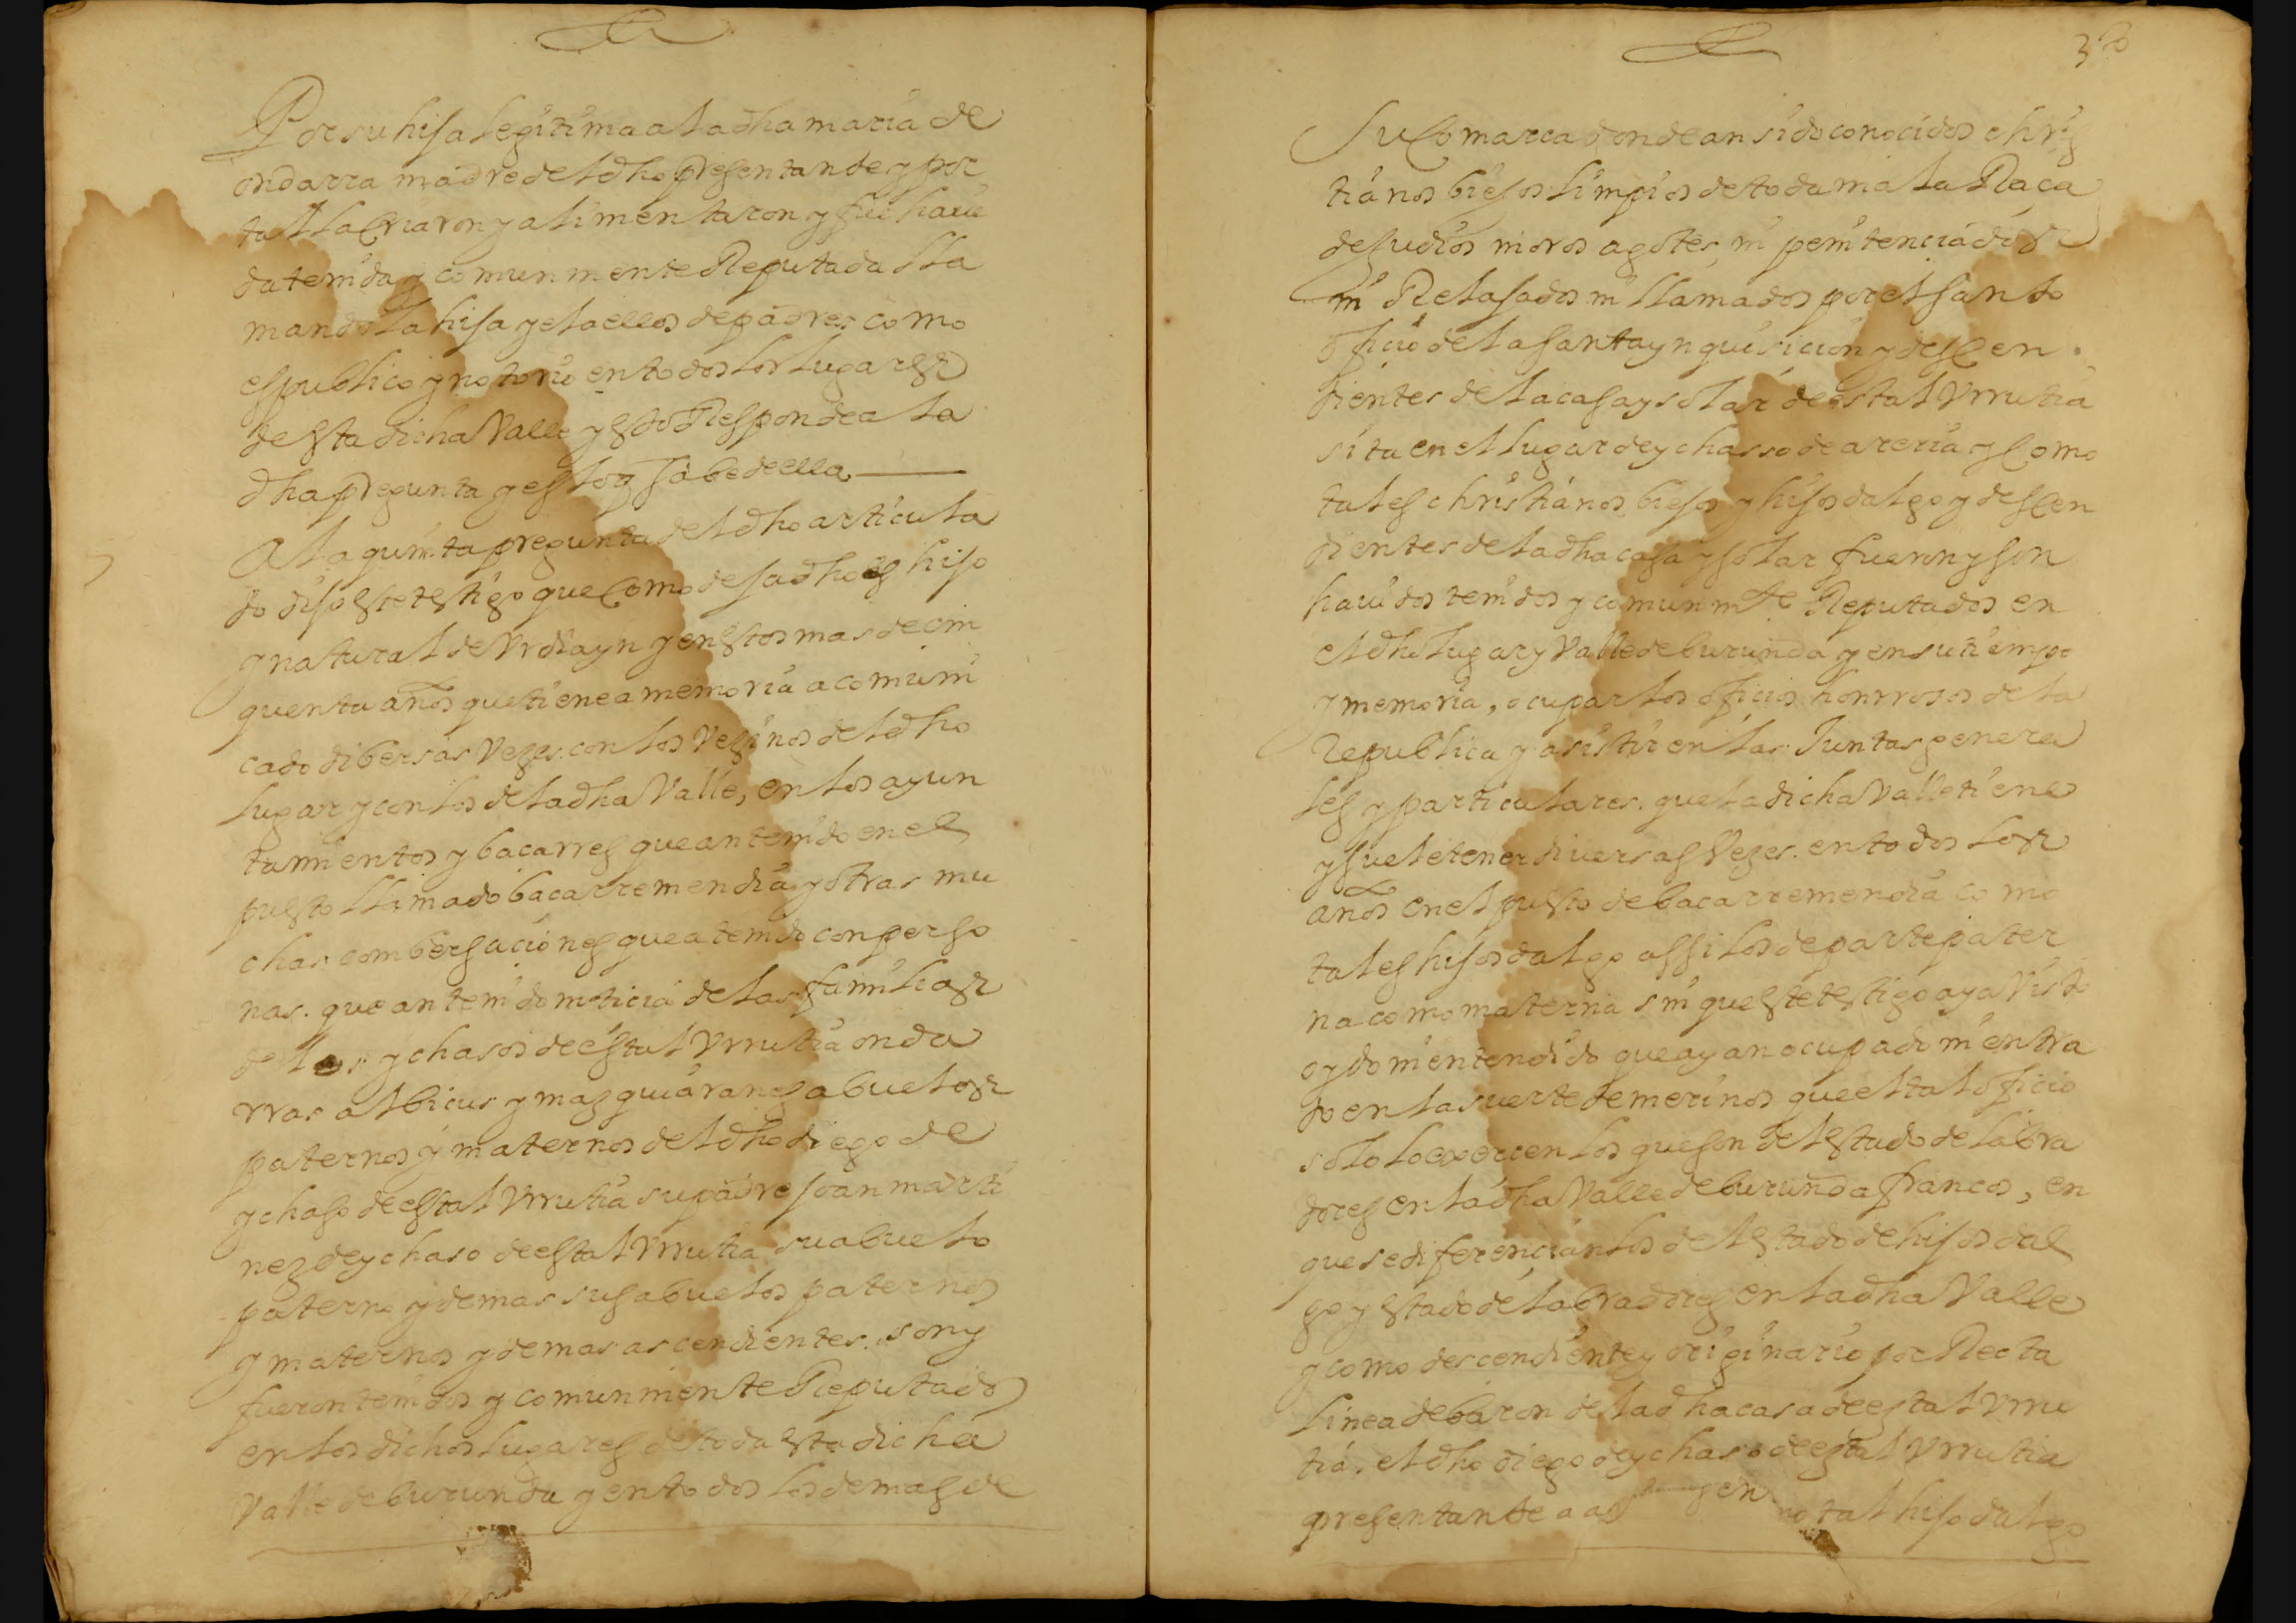 Por su hija legitima a la dha maria de
ondarra madre del dho presentante y por
tal la criaron y alimentaron y fue haui
da tenida y comunmente Reputada lla
mando la hija y el a ellos de padres como
es publico y notorio en todos los lugares
de esta dicha Valle y esto Responde a la
dha pregunta y esto q sabe de ella
A la quinta pregunta del dho articula
do dijo este testigo que como deja dho es hijo
y natural de Vrdiayn y en estos mas de cin
quenta años que tiene a memoria a comuni
cado dibersas Vezes con los Vezinos del dho
lugar y con los de la dha Valle, en los ayun
tamientos y bacarres que an tenido en el
puesto llamado bacarremendia y otras mu
chas combersaciones que a tenido con perso
nas que an tenido noticia de las familias
de los ychasos de estal Vrrutia onda
rras albicus y mazquiaranes abuelos
paternos y maternos del dho diego de
ychaso de estal Vrrutia su padre joan marti
nez de ychaso de estal Vrrutia su abuelo
paterno y demas sus abuelos paternos
y maternos y demas ascendientes son y
fueron tenidos y comunmente Reputados
en los dichos lugares de toda esta dicha
Valle de burunda y en todos los demas de
su comarca donde an sido conocidos chris
tianos biejos limpios de toda mala Raça
de judios moros agotes, ni penitenciados
ni Relajados ni llamados por el santo
oficio de la santa ynquisicion y descen
dientes de la casa y solar de estal Vrrutia
sita en el lugar de ychasso de areria y como
tales christianos biejos y hijosdalgo y descen
dientes de la dha casa y solar fueron y son
hauidos tenidos y comunmte Reputados en
el dho lugar y Valle de burunda y en su tiempo
y memoria, ocupar los oficios honrrosos de la
Republica y asistir en las Juntas genera
les y particulares que la dicha Valle tiene
y suele tener diuersas Vezes en todos los
años en el puesto de bacarremendia como
tales hijosdalgo assi los de parte pater
na como materna sin que este testigo aya Visto
oydo ni entendido que ayan ocupado ni entra
do en la suerte de merinos que el tal oficio
solo lo exercen los que son del estado de labra
dores en la dha Valle de burunda francos, en
que se diferencian los del estado de hijosdal
go y estado de labradores en la dha Valle
y como descendiente y originario por Recta
linea de baron de la dha casa de estal Vrru
tia, el dho diego de ychaso de estal Vrrutia
presentante a as gen no tal hijodalgo